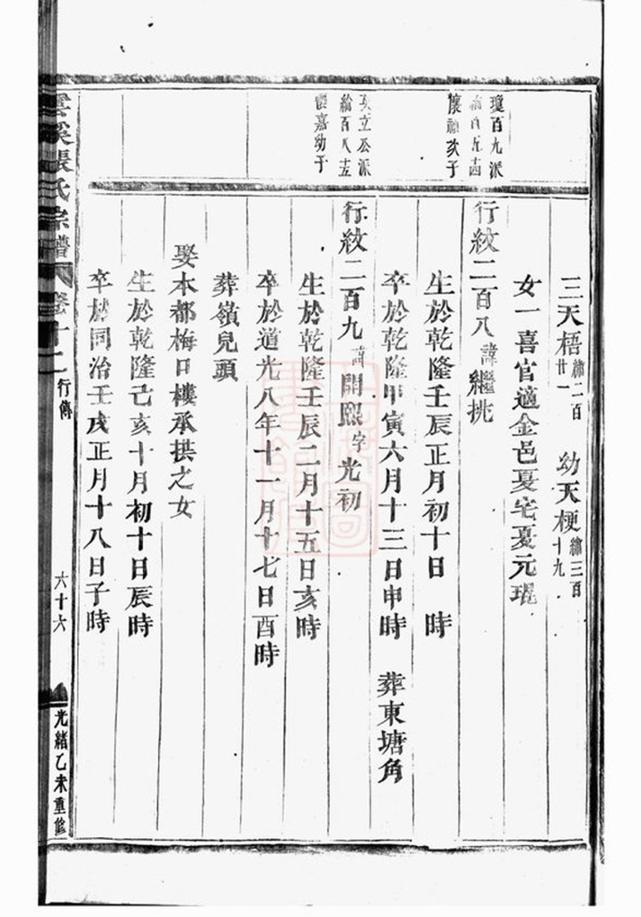 三天梧繡二百廿一 幼天梗繡三百十九
女一喜官適金邑夏宅夏元琨
瓊百九派
懷禎次子
行紋二百八諱繼挑
生於乾隆壬辰正月初十日 時
卒於乾隆甲寅六月十三日申時 葬東塘角
亥立公派
懷嘉幼子
行紋二百九諱開熙字光初
生於乾隆壬辰二月十五日亥時
卒於道光八年十一月十七日酉時
葬嶺兒頭
娶本都梅口樓承拱之女
生於乾隆己亥十月初十日辰時
卒於同治壬戌正月十八日子時
雲溪張氏宗譜 卷十二 行傳 六十六 光緒乙未重修